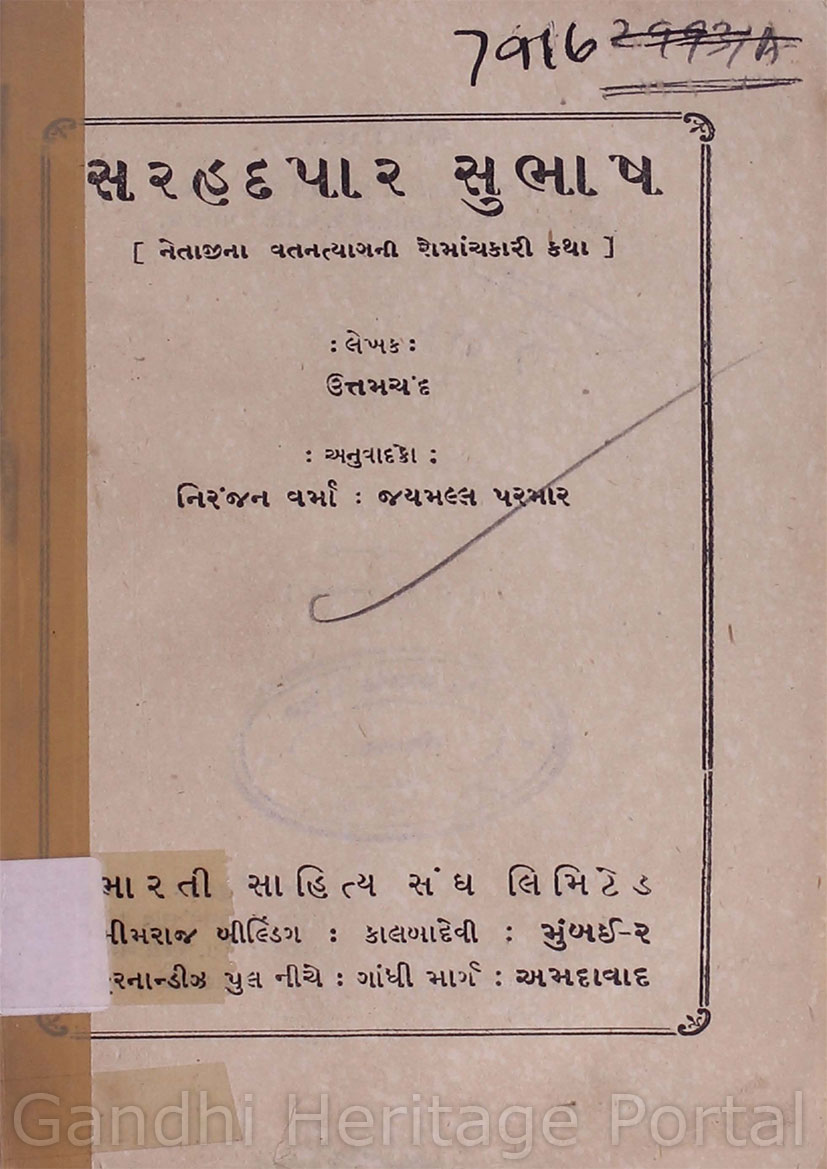 7916
સરહદપાર સુભાષ
[ નેતાજીના વતનત્યાગની રોમાંચકારી કથા ]
: લેખક :
ઉત્તમચંદ
: અનુવાદકો :
નિરંજન વર્મા : જયમલ્લ પરમાર
ભારતી સાહિત્ય સંઘ લિમિટેડ
બીલ્ડિંગ : કાલબાદેવી : મુંબઈ-૨
પુલ નીચે : ગાંધી માર્ગ : અમદાવાદ
Gandhi Heritage Portal